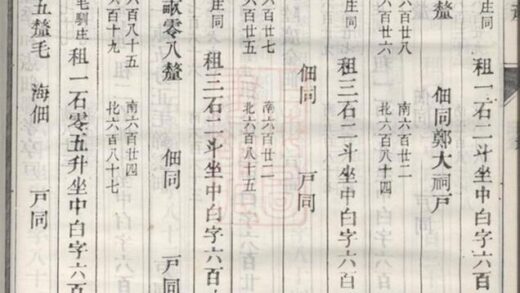 庄同　租一石二斗坐中白字六百
六百廿八　南六百廿二
六百廿六　北六百八十四
釐　佃同鄭大祠戸
庄同　租三石二斗坐中白字六百
佃同　戸同
六百廿七　南六百廿一
六百廿五　北六百八十五
庄同　租三石二斗坐中白字六百
畝零八釐　佃同　戸同
六百八十五　南六百廿四
六百十九　北六百八十七
毛馴庄　租一石零五升坐中白字六百
五釐毛　海佃　戸同